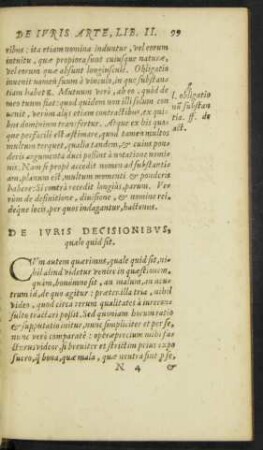 DE IVRIS ARTE, LIB. II. 99
ribus: ita etiam nomina induntur, vel eorum
intuitu, quæ propinqua sunt cuiusque naturæ,
vel eorum quæ absunt longiusculè. Obligatio
inuenit nomen suum à vinculo, in quo substan-
tiam habet. Mutuum verò, ab eo: quòd de
meo tuum fiat: quod quidem non illi soli conue-
nit, verùm alijs etiam contractibus, ex qui-
bus dominium transfertur. Atque ex his qui-
que perfacilè est æstimare, quid tamen multos
multum torquet, qualia tandem, & cuius pon-
deris argumenta duci possint à notatione nomi-
nis. Nam si propè accedit nomen ad substanti-
am, planum est, multum momenti & ponderis
habere: Si contrà recedit longiùs, parum. Ve-
rùm de definitione, diuisione, & nomine rei,
deque locis, per quos indagantur, hactenus.
l. obligatio
nũ substan
tia. ff. de
act.
DE IVRIS DECISIONIBVS,
quale quid sit.
CVm autem quærimus, quale quid sit, ni-
hil aliud videtur venire in quæstionem,
quàm, bonúmne sit, an malum, an neu-
trum id, de quo agitur: præter illa tria, nihil
video, quod circa rerum qualitates à iurecon-
sulto tractari possit. Sed quoniam horum ratio
& supputatio initur, nunc simpliciter et per se,
nunc verò comparatè: operæprecium mihi fac-
turus videor, si breuiter et strictim priùs expo
suero, q̃ bona, quæ mala, quæ neutra sint p se,
N 4 &